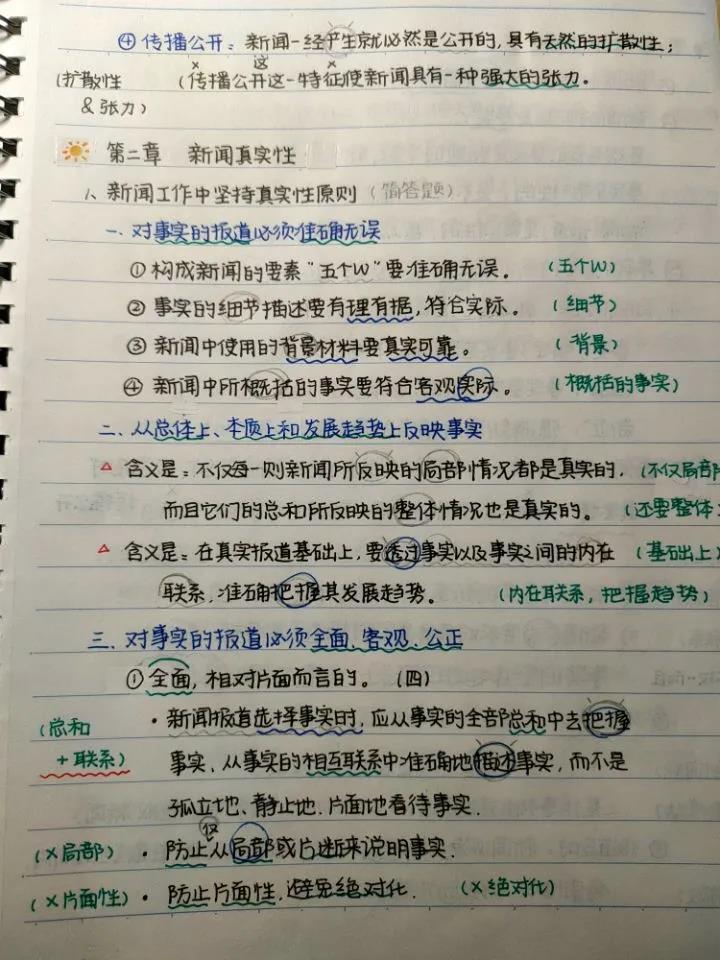 ④ 传播公开：新闻一经产生就必然是公开的，具有天然的扩散性；
(扩散性 (传播公开这一特征使新闻具有一种强大的张力。
& 张力)
第二章 新闻真实性
1、新闻工作中坚持真实性原则（简答题）
一、对事实的报道必须准确无误
① 构成新闻的要素"五个W"要准确无误。（五个W）
② 事实的细节描述要有理有据，符合实际。（细节）
③ 新闻中使用的背景材料要真实可靠。（背景）
④ 新闻中所概括的事实要符合客观实际。（概括的事实）
二、从总体上、本质上和发展趋势上反映事实
△ 含义是：不仅每一则新闻所反映的局部情况都是真实的，（不仅局部
而且它们的总和所反映的整体情况也是真实的。（还要整体
△ 含义是：在真实报道基础上，要透过事实以及事实之间的内在（基础上）
联系，准确把握其发展趋势。（内在联系，把握趋势）
三、对事实的报道必须全面、客观、公正
① 全面，相对片面而言的。（四）
(总和 · 新闻报道选择事实时，应从事实的全部总和中去把握
+ 联系) 事实、从事实的相互联系中准确地描述事实，而不是
孤立地、静止地、片面地看待事实．
(×局部) · 防止仅从局部或片断来说明事实．
(×片面性) · 防止片面性，避免绝对化．（×绝对化）